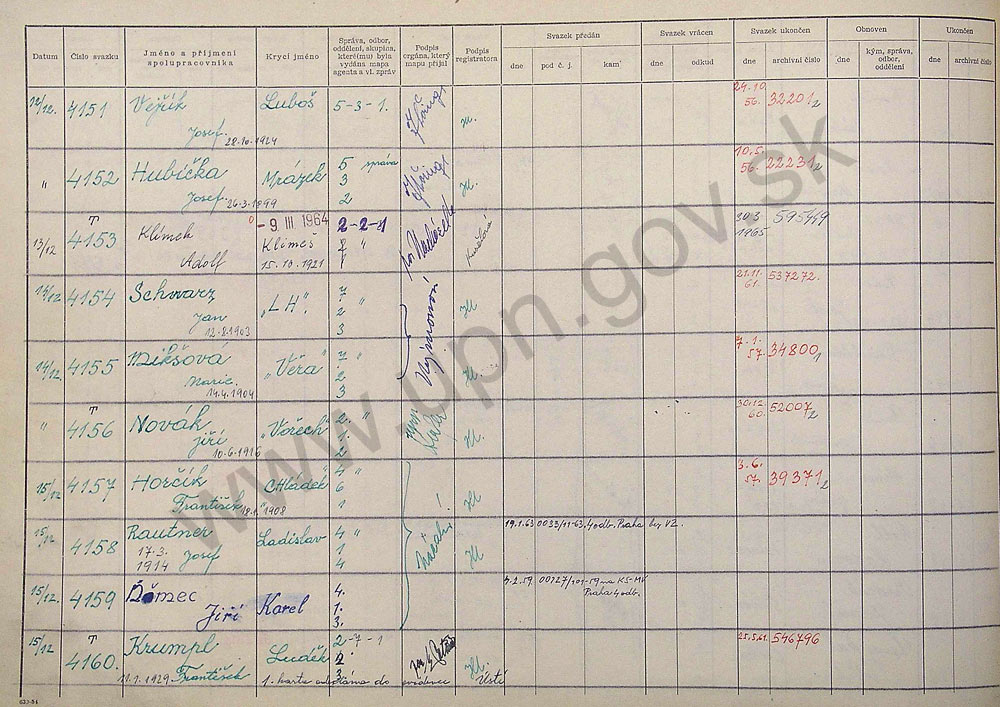 Datum
Číslo svazku
Jméno a příjmení spolupracovníka
Krycí jméno
Správa, odbor, oddělení, skupina, které(mu) byla vydána mapa agenta a vl. zpráv
Podpis orgána, který mapu přijal
Podpis registratora
Svazek předán
dne
pod č. j.
kam
Svazek vrácen
dne
odkud
Svazek ukončen
dne
archivní číslo
Obnoven
dne
kým, správa, odbor, oddělení
Ukončen
dne
archivní číslo
12/12. 4151 Josef 28.10.1924 Luboš 5-3-1. 32201/2
" 4152 Hubička Josef 26.3.1899 Mrázek 5 správa 3 2 10.5. 56. 22231/2
13/12 T 4153 Klímek Adolf - 9. III. 1964 Klimeš 15.10.1921 2-2-1 " 30.3 1965
14/12 4154 Schwarz Jan 12.8.1903 "LH" 7 " 2 3 21.11. 61. 537272.
14/12. 4155 Mikšová Marie 14.4.1904 "Věra" 7 " 2 3 7.1. 57. 34800/1
" T 4156 Novák Jiří 10.6.1916 "Vořech" 2. " 1. 2 30.12. 60. 52007/2
15/12 4157 Horčík František 1908 "Chládek" 4 " 6 1 3.6. 57. 39371/2
15/12. 4158 Rautner 17.3. 1914 Josef Ladislav 4 " 1 4 19.1.63 0033/11-63. 4 odb. Praha VZ.
15/12. 4159 Němec Jiří Karel 4. 1. 3. 59 Praha 4 odb.
15/12 T 4160. Krumpl 11.1.1929 František Luděk 2-7-1 2 3 25.5.61. 546796
1. karta odeslána do evidence Ústí
www.upn.gov.sk